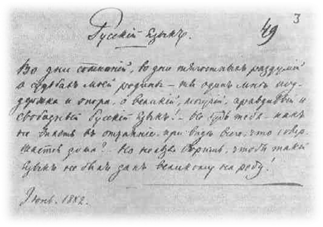 3
49
Русскій языкъ.
Во дни сомнѣній, во дни тягостныхъ раздумій
о судьбахъ моей родины – ты одинъ мнѣ под-
держка и опора, о великій, могучій, правдивый и
свободный русскій языкъ! – Не будь тебя – какъ
не впасть въ отчаяніе, при видѣ всего, что совер-
шается дома? – Но нельзя вѣрить, чтобы такой
языкъ не былъ данъ великому народу!
Іюнь. 1882.